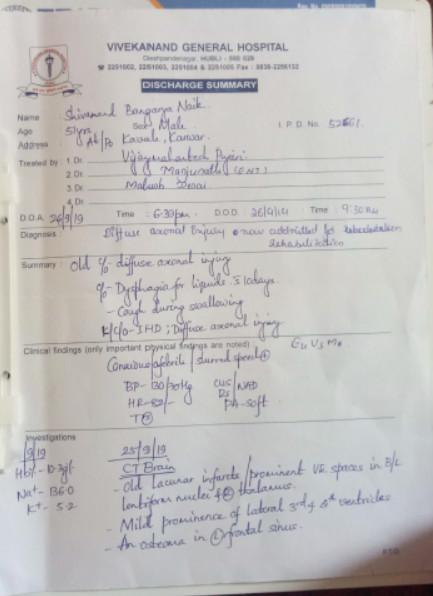 VIVEKANAND GENERAL HOSPITAL
Deshpandenagar, HUBLI - 580 029
DISCHARGE SUMMARY
Name : Shivanand Bangarya Naik
Age : 51yrs Sex : Male I.P.D. No.
Address : At/Po Kaiwale, Karwar.
Treated by : 1. Dr. Vijaymahantesh Pujari
2. Dr. Manjunath (ENT)
3. Dr. Mahesh Desai
4. Dr.
D.O.A. 26/9/19 Time : 6-30pm. D.O.D. : 26/9/19 Time : 9:30
Diagnosis : Diffuse axonal Injury now admitted for
Rehabilitation
Summary : Old c/o - diffuse axonal injury
c/o - Dysphagia for liquids 10days.
- Cough during swallowing
K/C/O - IHD ; Diffuse axonal injury
Clinical findings (only important physical findings are noted) :
Conscious/afebrile / slurred speech +
BP- 130/70Hg CVS NAD
HR- 82/- RS
PA- soft
Investigations
/9/19 25/9/19
Hb%- 10.3g% CT Brain
Na+ - 136.0 - Old lacunar infarcts / prominent VR spaces in B/L
K+ - 5.2 lentiform nuclei & thalamus.
- Mild prominence of lateral 3rd & 4th ventricles
- An osteoma in L frontal sinus.